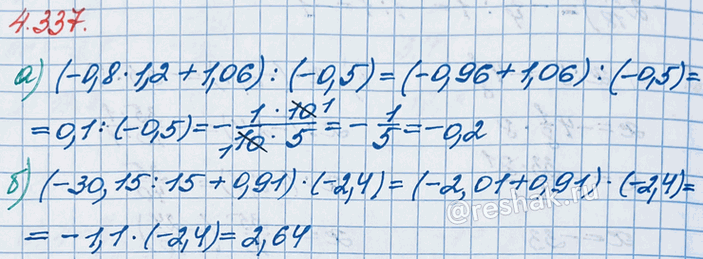 4.337.
а) (-0,8·1,2+1,06):(-0,5)=(-0,96+1,06):(-0,5)=
=0,1:(-0,5)=-(1·10 1)/(1 10·5)=-1/5=-0,2
б) (-30,15:15+0,91)·(-2,4)=(-2,01+0,91)·(-2,4)=
@reshak.ru
=-1,1·(-2,4)=2,64